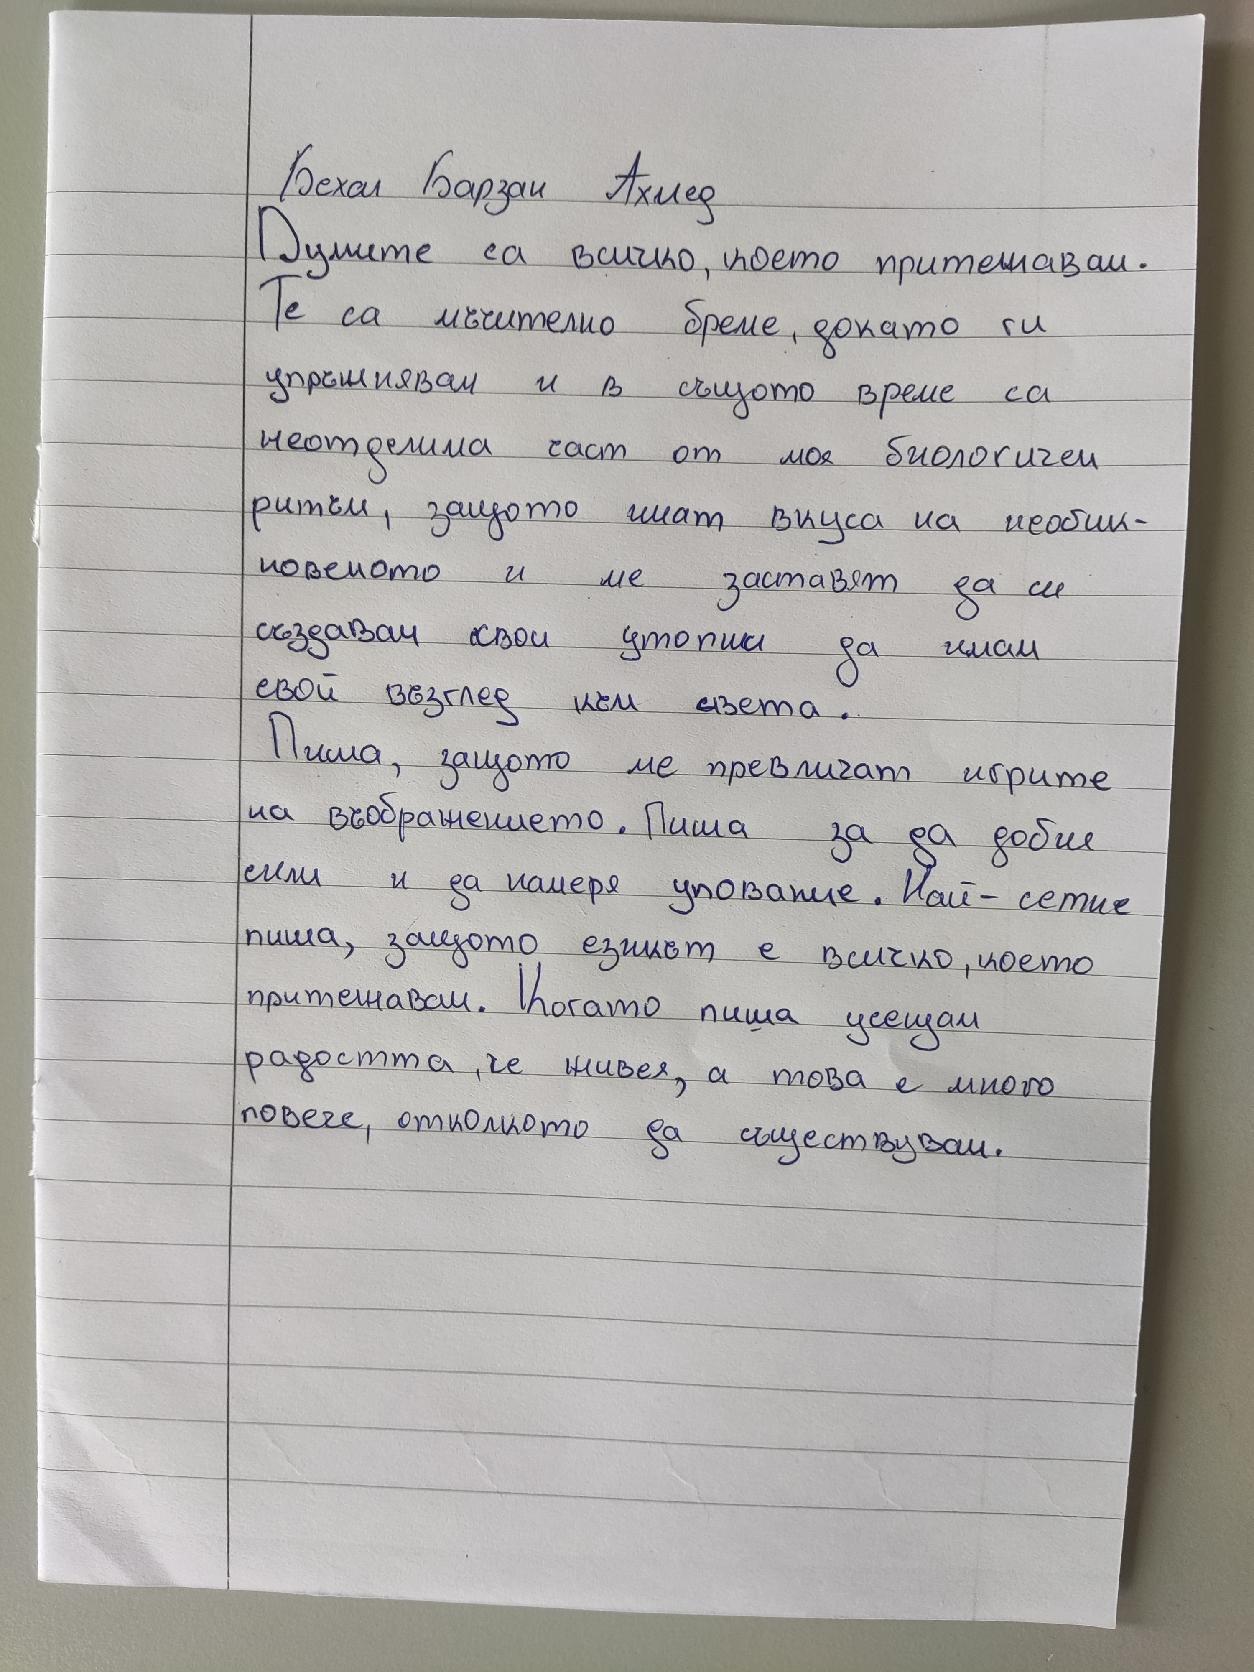 Бехал Барзан Ахмед
Думите са всичко, което притежавам.
Те са мъчително бреме, докато ги
упражнявам и в същото време са
неотделима част от моя биологичен
ритъм, защото имат вкуса на необик-
новеното и ме заставят да си
създавам свои утопии да имам
свой възглед към света.
Пиша, защото ме превличат игрите
на въображението. Пиша за да добия
сили и да намеря упование. Най-сетне
пиша, защото езикът е всичко, което
притежавам. Когато пиша усещам
радостта, че живея, а това е много
повече, отколкото да съществувам.